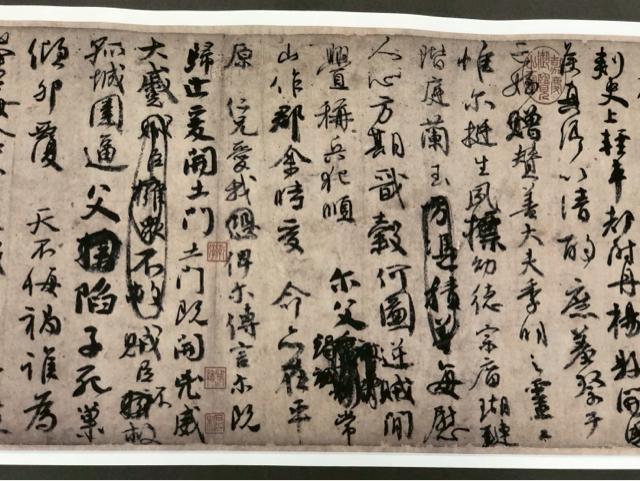 刺史上輕車都尉丹楊縣開國
侯真卿以清酌庶羞祭于
亡姪贈贊善大夫季明之靈曰
惟爾挺生夙標幼德宗廟瑚璉
階庭蘭玉方憑積善每慰
人心方期戩穀何圖逆賊閒
釁稱兵犯順爾父竭誠常
山作郡余時受命亦在平
原仁兄愛我俾爾傳言爾既
歸止爰開土門土門既開兇威
大蹙賊臣擁眾不救賊臣不救
孤城圍逼父陷子死巢
傾卵覆天不悔禍誰為